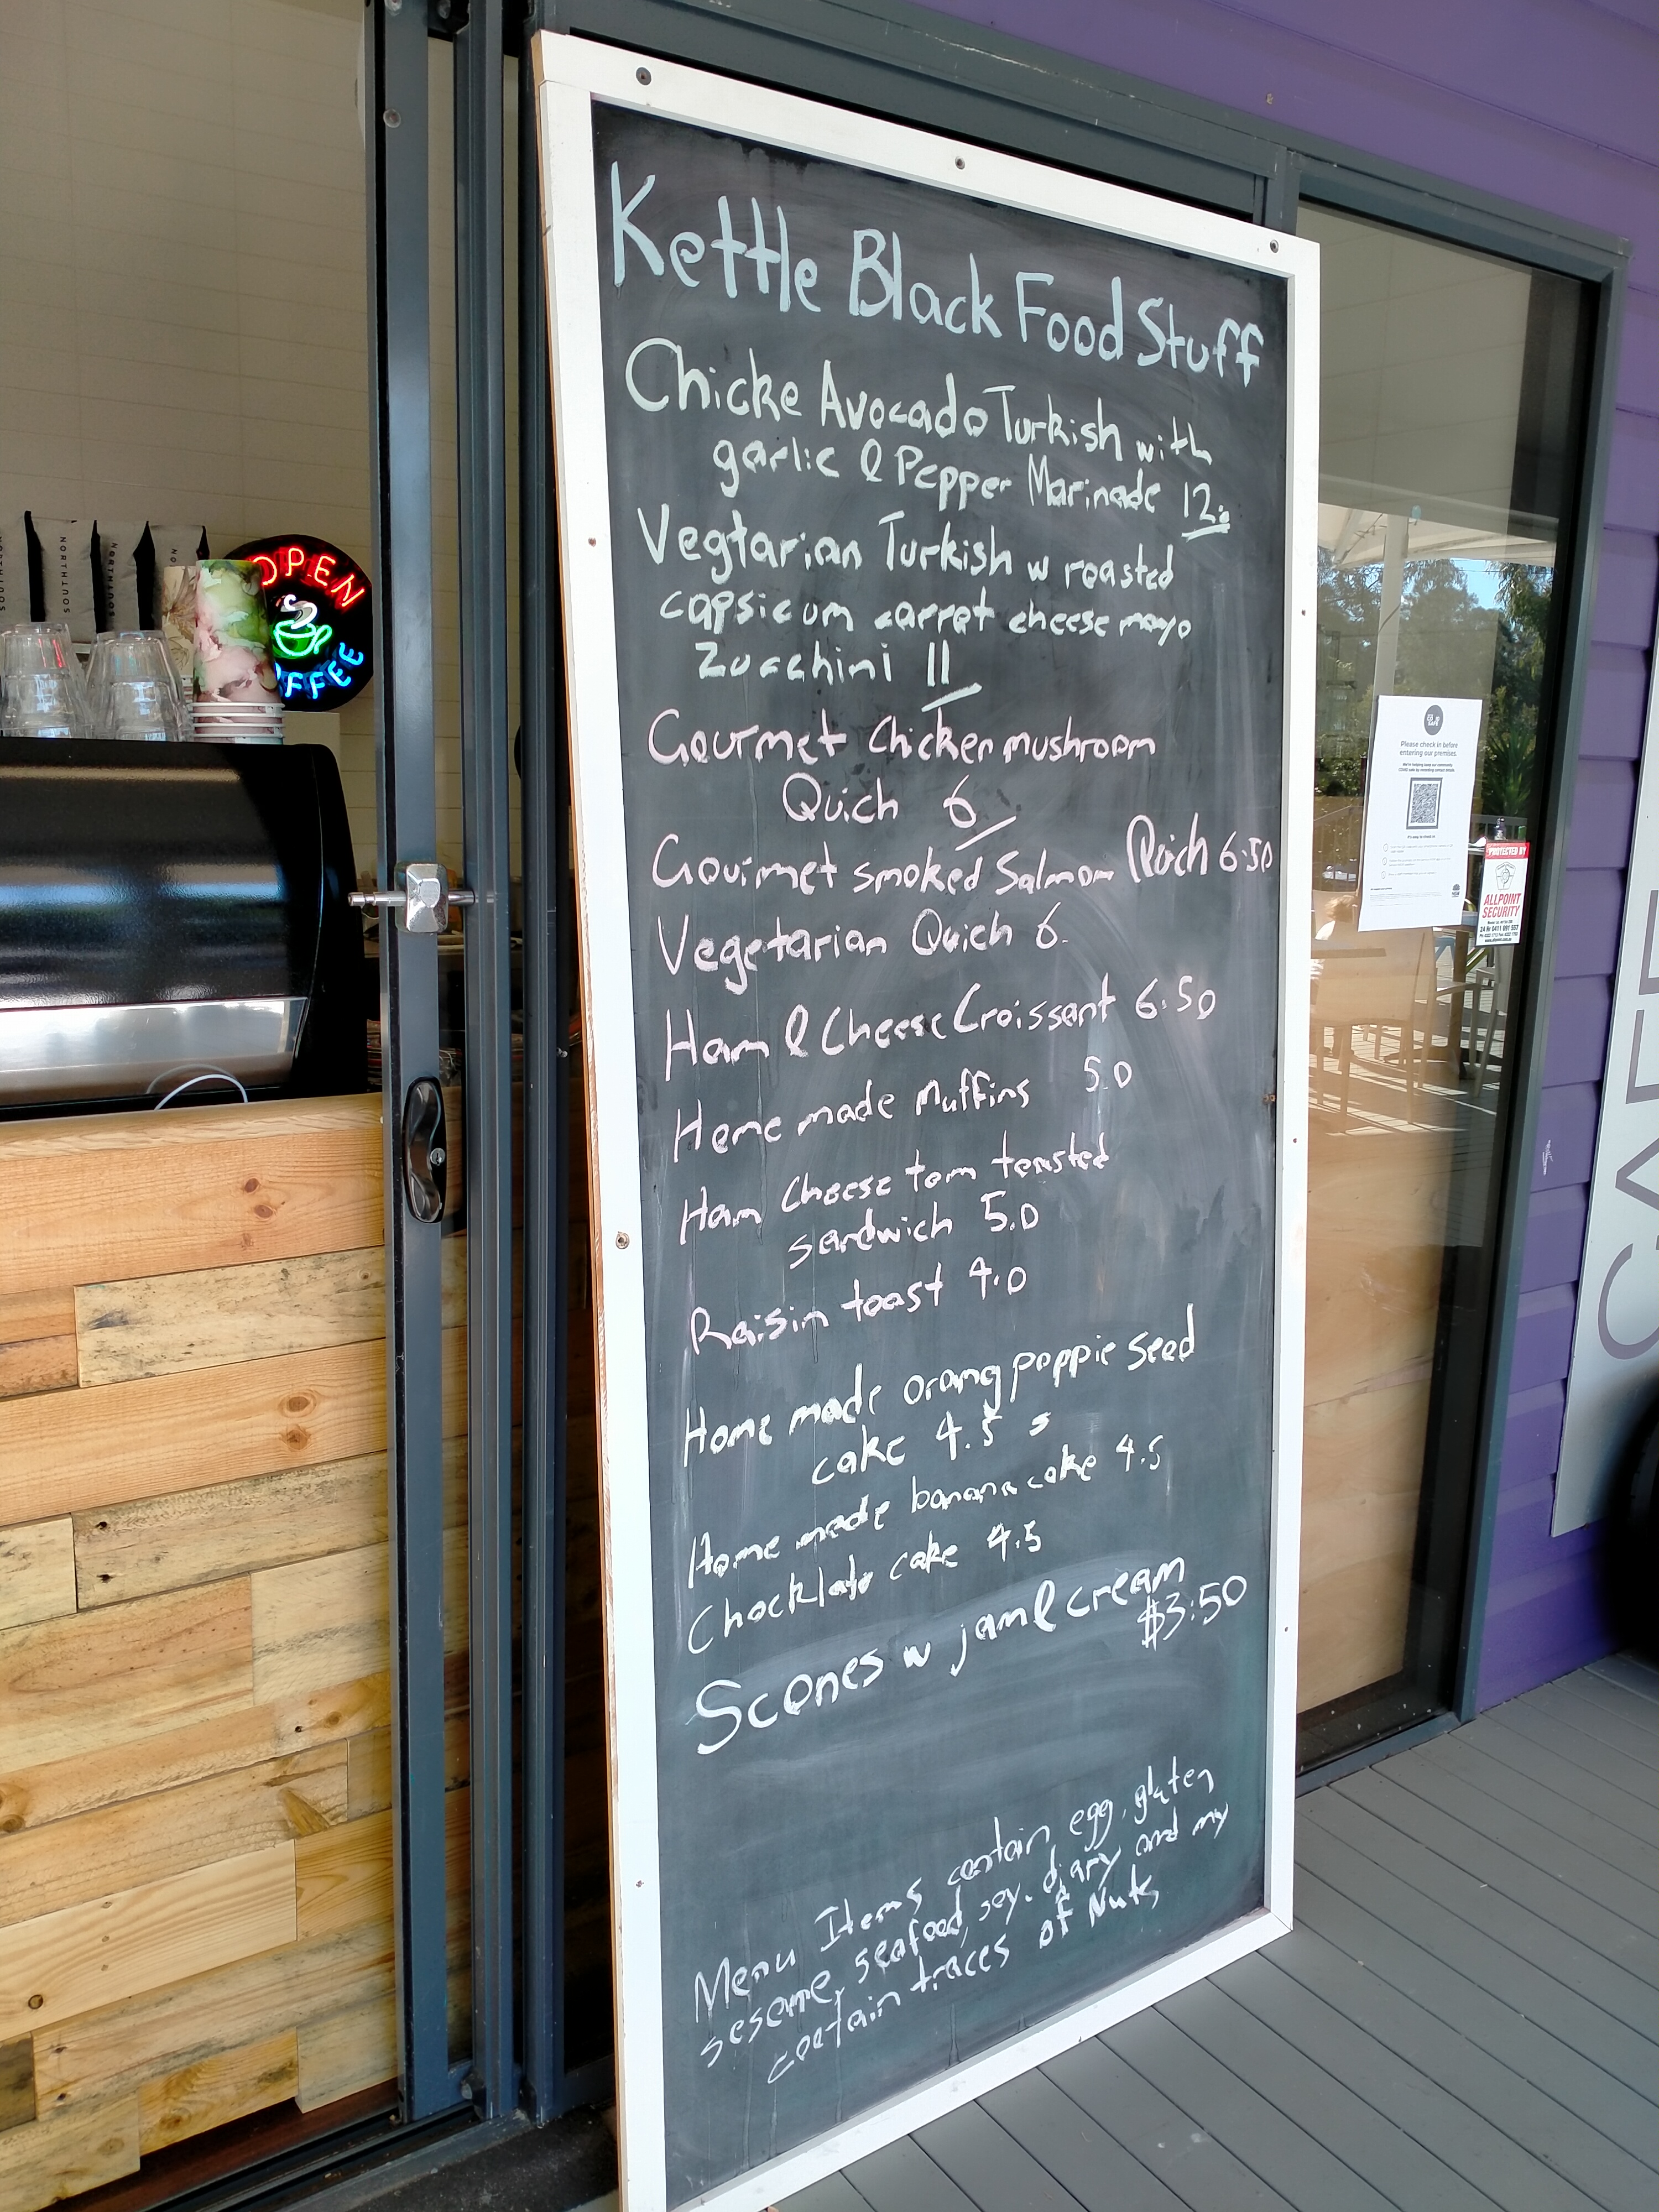 Kettle Black Food Stuff
Chicke Avocado Turkish with
garlic & Pepper Marinade 12.
Vegtarian Turkish w roasted
capsicum carrot cheese mayo
Zucchini 11
Gourmet Chicken mushroom
Quich 6
Gourmet smoked Salmon Quich 6.50
Vegetarian Quich 6.
Ham & Cheese Croissant 6.50
Home made Muffins 5.0
Ham Cheese tom toasted
sandwich 5.0
Raisin toast 4.0
Home made orang poppie seed
cake 4.5 s
Home made banana cake 4.5
Chocklate cake 4.5
Scones w jam & cream
$3:50
Menu Items contain egg, gluten
sesame, seafood, soy. diary and my
contain traces of Nuts
OPEN
FFEE
NORTHSOUTH
Please check in before
entering our premises.
PROTECTED BY
ALLPOINT
SECURITY
CAFE